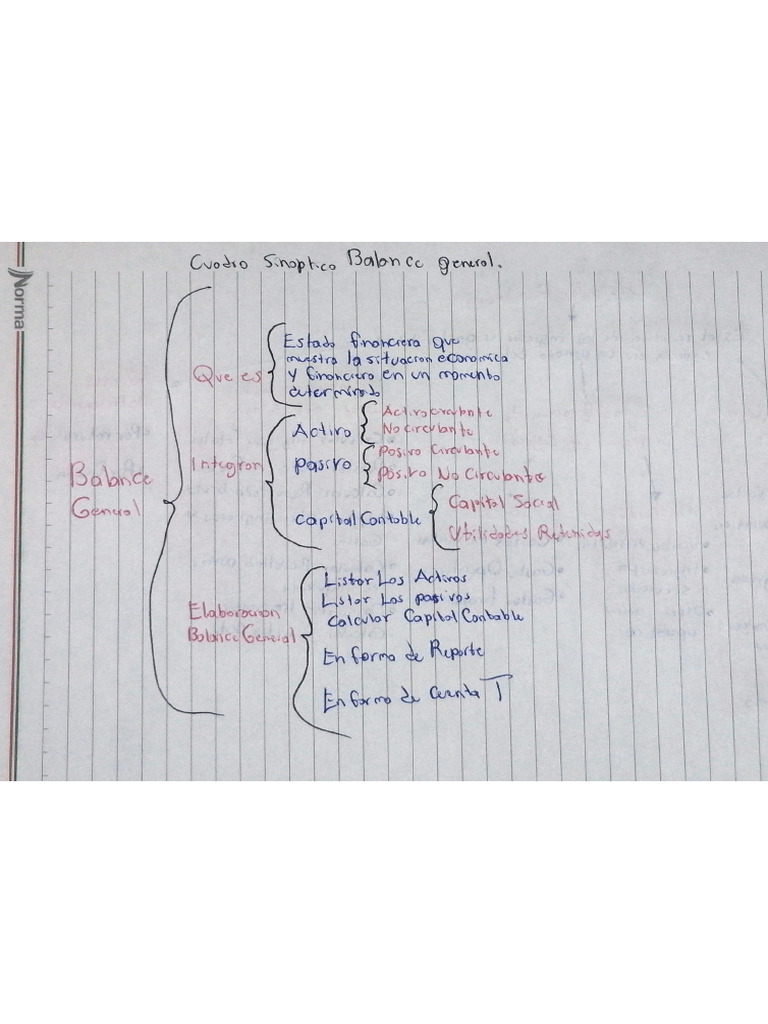 Norma
Cuadro Sinoptico Balance general.
Balance
General
Que es
Estado financiera que
muestra la situacion economica
y financiero en un momento
determinado
Integran
Activo
Activo circulante
No circulante
pasivo
Pasivo Circulante
Pasivo No Circulante
Capital Contable
Capital Social
Utilidades Retenidas
Elaboracion
Balance General
Listar Los Activos
Listar Los pasivos
Calcular Capital Contable
En forma de Reporte
En forma de Cuenta T